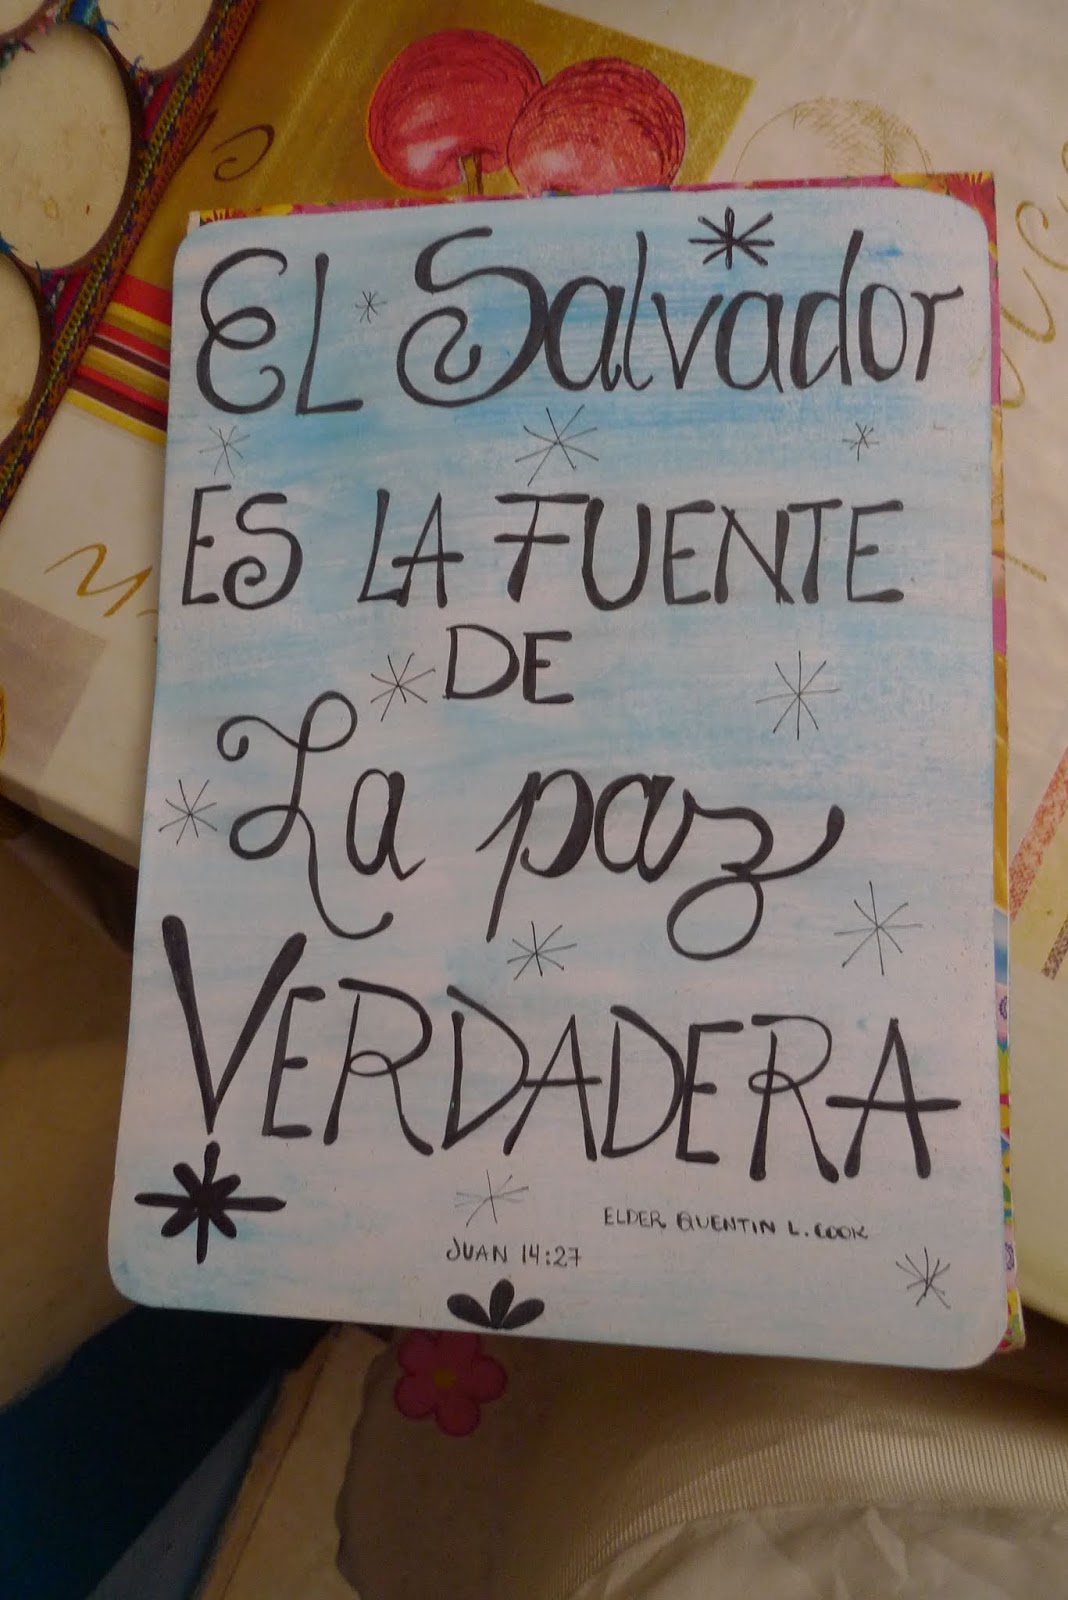 El Salvador
ES LA FUENTE
DE
La paz
VERDADERA
ELDER QUENTIN L. COOK
JUAN 14:27